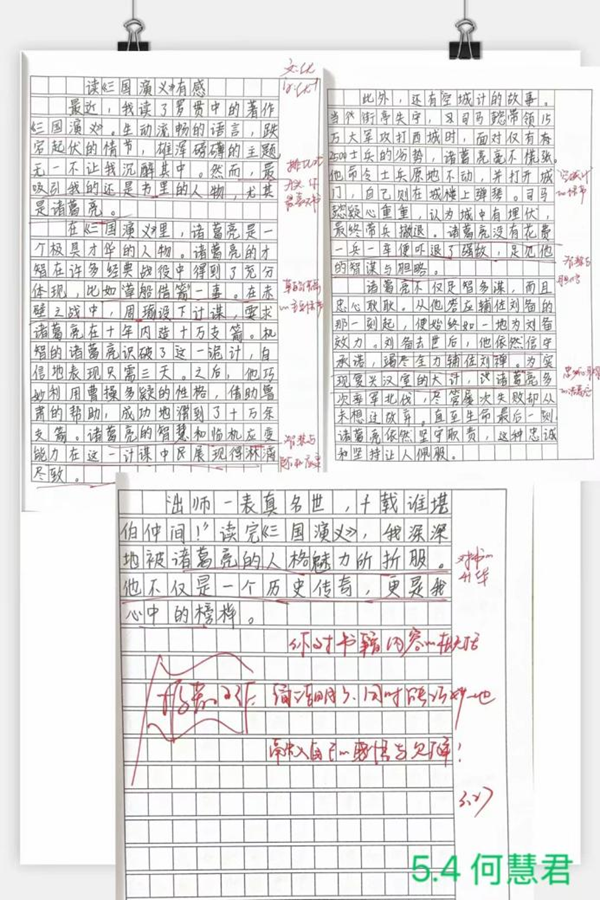 读《三国演义》有感
最近，我读了罗贯中的著作
《三国演义》。生动流畅的语言，跌
宕起伏的情节，雄浑磅礴的主题
无一不让我沉醉其中。然而，最
吸引我的还是书里的人物，尤其
是诸葛亮。
在《三国演义》里，诸葛亮是一
个极具才华的人物。诸葛亮的才
智在许多经典战役中得到了充分
体现，比如“草船借箭”一事。在赤
壁之战中，周瑜设下计谋，要求
诸葛亮在十年内造十万支箭。机
智的诸葛亮识破了这一诡计，自
信地表现只需三天。之后，他巧
妙利用曹操多疑的性格，借助鲁
肃的帮助，成功地得到了十万余
支箭。诸葛亮的智慧和临机应变
能力在这一计谋中展现得淋漓
尽致。
此外，还有空城计的故事。
当街亭失守，司马懿带领15
万大军攻打西城时，面对仅有
2500士兵的劣势，诸葛亮亮不慌张。
他命令士兵原地不动，并打开城
门，自己则在城楼上弹琴。司马
懿疑心重重，认为城中有埋伏，
最终带兵撤退。诸葛亮没有花费
一兵一车便吓退了强敌，足见他
的智谋与胆略。
诸葛亮不仅足智多谋，而且
忠心耿耿。从他答应辅佐刘备的
那一刻起，便始终如一地为刘备
效力。刘备去世后，他依然信守
承诺，竭尽全力辅佐刘禅。为实
现复兴汉室的大计，诸葛亮多
次率军北伐，尽管屡次失败却从
未想过放弃。直至生命最后一刻，
诸葛亮依然坚守职责，这种忠诚
和坚持让人佩服。
“出师一表真名世，千载谁堪
伯仲间！”读完《三国演义》，我深深
地被诸葛亮的人格魅力所折服。
他不仅是一个历史传奇，更是我
心中的榜样。
你对书籍内容的
简洁明了，同时巧妙地
融入自己的感情与见解！
5.4 何慧君